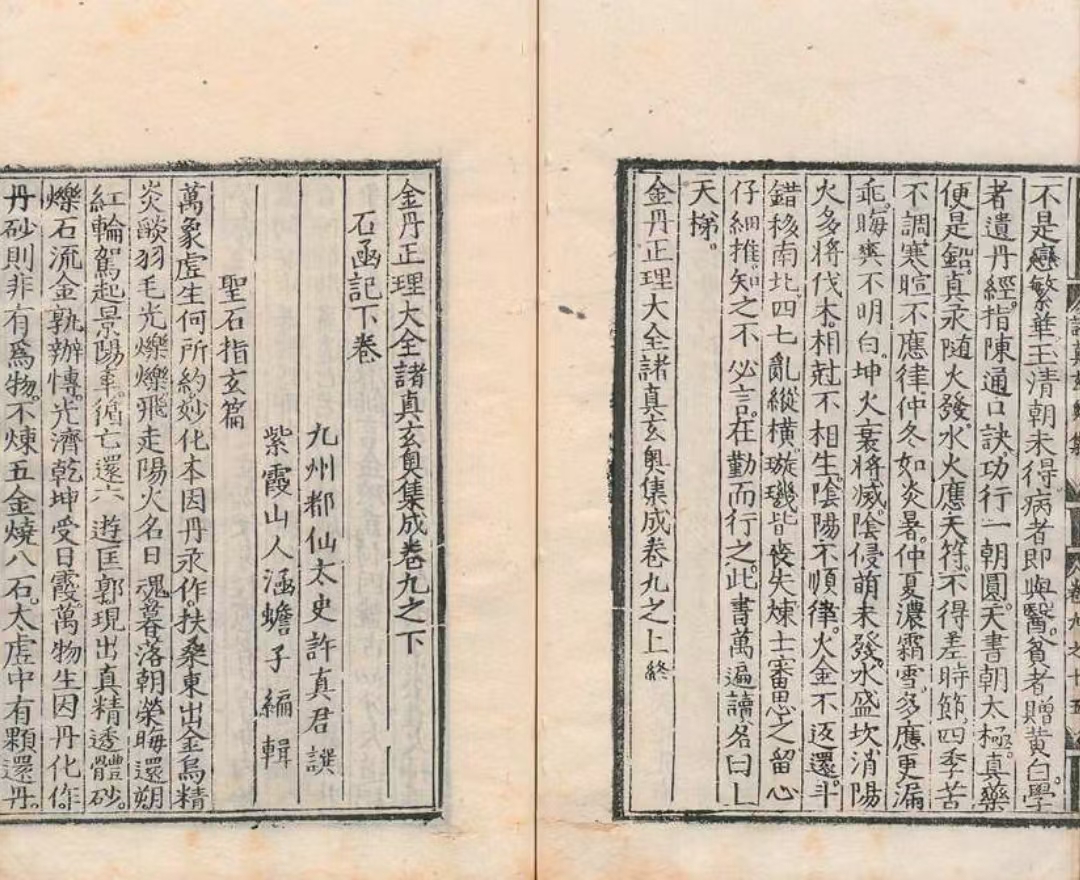 不是戀繁華玉清朝未得病者即與醫貧者贈黃白學
者遺丹經指陳通口訣功行一朝圓天書朝太極真藥
便是鉛真汞隨火發水火應天符不得差時節四季苦
不調寒暄不應律仲冬如炎暑仲夏濃霜雪多應更漏
乖晦爽不明白坤火衰將滅陰侵萌未發水盛坎消陽
火多將伐本相尅不相生陰陽不順律火金不返還斗
錯移南北四七亂縱橫璇璣皆喪失煉士審思之留心
仔細推知之不必言在勤而行之此書萬遍讀名曰上
天梯
金丹正理大全諸真玄奧集成卷九之上終
金丹正理大全諸真玄奧集成卷九之下
石函記下卷
九州都仙太史許真君譔
紫霞山人涵蟾子編輯
聖石指玄篇
萬象虛生何所約妙化本因丹汞作扶桑東出金烏精
炎燄羽毛光爍爍飛走陽火名日魂暮落朝榮晦還朔
紅輪駕起景陽車循亡還六遊匡郭現出真精透體砂
爍石流金孰辦慱光濟乾坤受日霞萬物生因丹化作
丹砂則非有爲物不煉五金燒八石太虛中有顆還丹